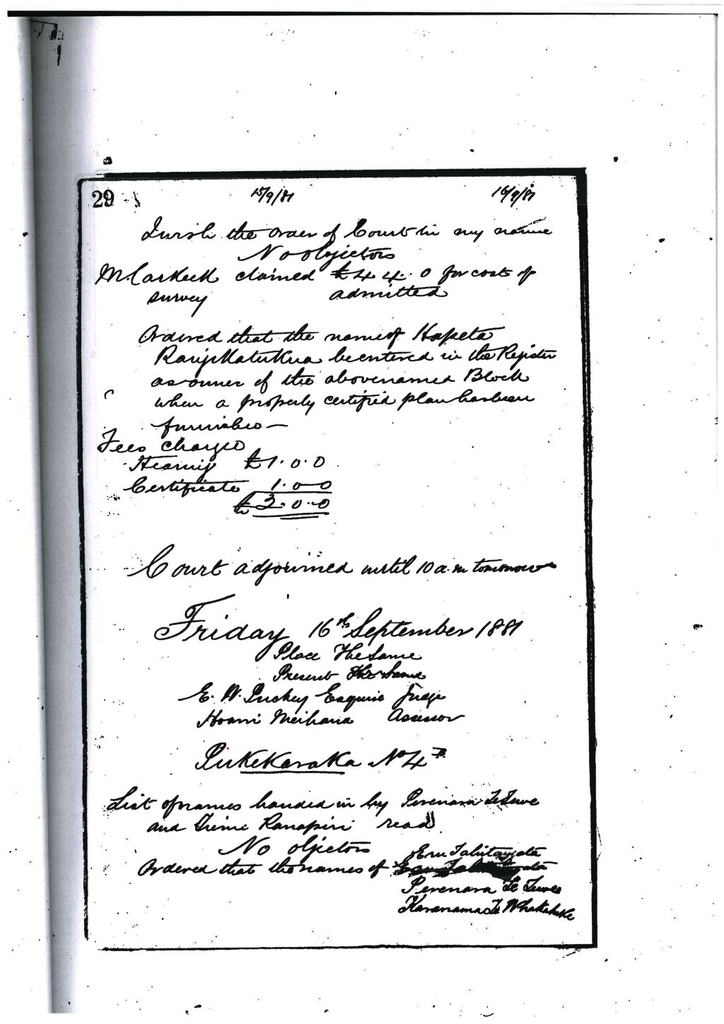 29 15/9/81 16/9/81
I wish the order of Court in my name
No objectors
claimed £44.0 for cost of
survey admitted
Ordered that the name of Hapeta
Rangikatukua be entered in the Register
as owner of the abovenamed Block
when a properly certified plan has been
furnished —
Fees charged
Hearing £1.0.0
Certificate 1.0.0
£2.0.0
Court adjourned until 10 a.m tomorrow
Friday 16th September 1881
Place The Same
Present The Same
E. W. Puckey Esquire Judge
Hoani Meihana Assessor
Pukekaraka No 4
List of names handed in by Perenara Te Tewe
and Heni Ranapiri read
No objectors
Ordered that the names of Eru Tahitangata
Perenara Te Tewe
Karanama Te Whakaheke